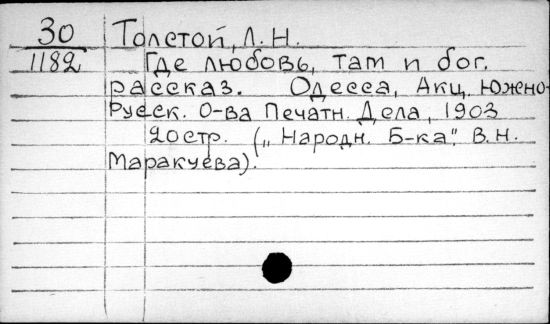 30 Толстой, Л. Н.
1182 Где любовь, там и бог.
рассказ. Одесса, Акц. Южно-
Русск. О-ва Печатн. Дела, 1903
20стр. („Народн. Б-ка", В. Н.
Маракуева).